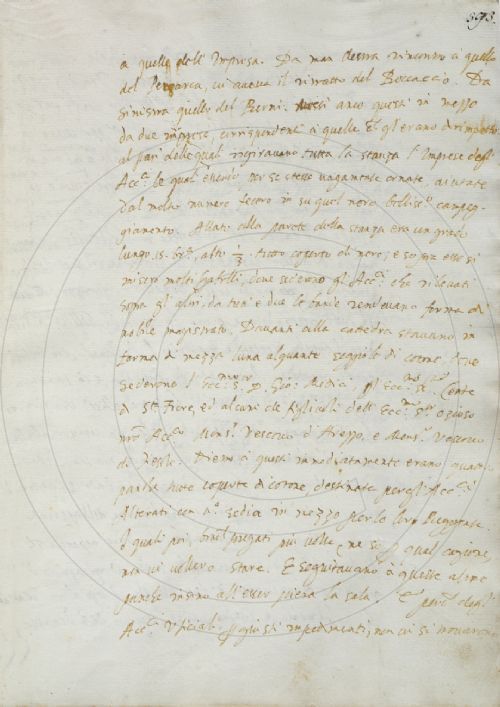 393.
à quello dell' Impresa. Da man destra rincontro à quello
del Petrarca, vi aveva il ritratto del Boccaccio. Da
sinistra quello del Berni. anco questi in mezzo
da due imprese, corrispondenti à quelle che gli erano dirimpetto
al pari delle quali giravano tutta la stanza l'Imprese degl'
Acc.ci le quali essendo per se stesse vagamente ornate, aiutate
dal molto numero in su quel nero bellissº campeg-
giamento. Allato alla parete della stanza era un grado
lungo 15. br.a, alto 1/3. tutto coperto di nero; e sopra esso si
misero molti sgabelli, dove sederono gl'Acc.ci che rilevati
sopra gl'altri, da tre e due le bande rendevano forma di
nobile magistrato. Davanti alla catedra stavano in
forma di mezza luna alquante seggiole di , dove
sederono l'Ecc.mo S. D. Gio: Medici, Conte
di S.ta Fiore, ed alcuni de figlioli dell' Ecc.mo S.r
nro Acc.co Mons.r Vescovo d'Arezzo, e Mons.r Vescovo
di Fiesole. Dietro à questi immediatamente erano
panche tutte coperte di , destinate per gl'Acc.ci
Alterati con una sedia in mezzo per lo loro Reggente.
I quali poi, pregati più volte, ne so p qual cagione,
non vi vollero stare. E seguitavano à queste altre
panche insino all'esser piena la sala. degl'
Acc.ci p giusti impedimenti, non vi si trovarono